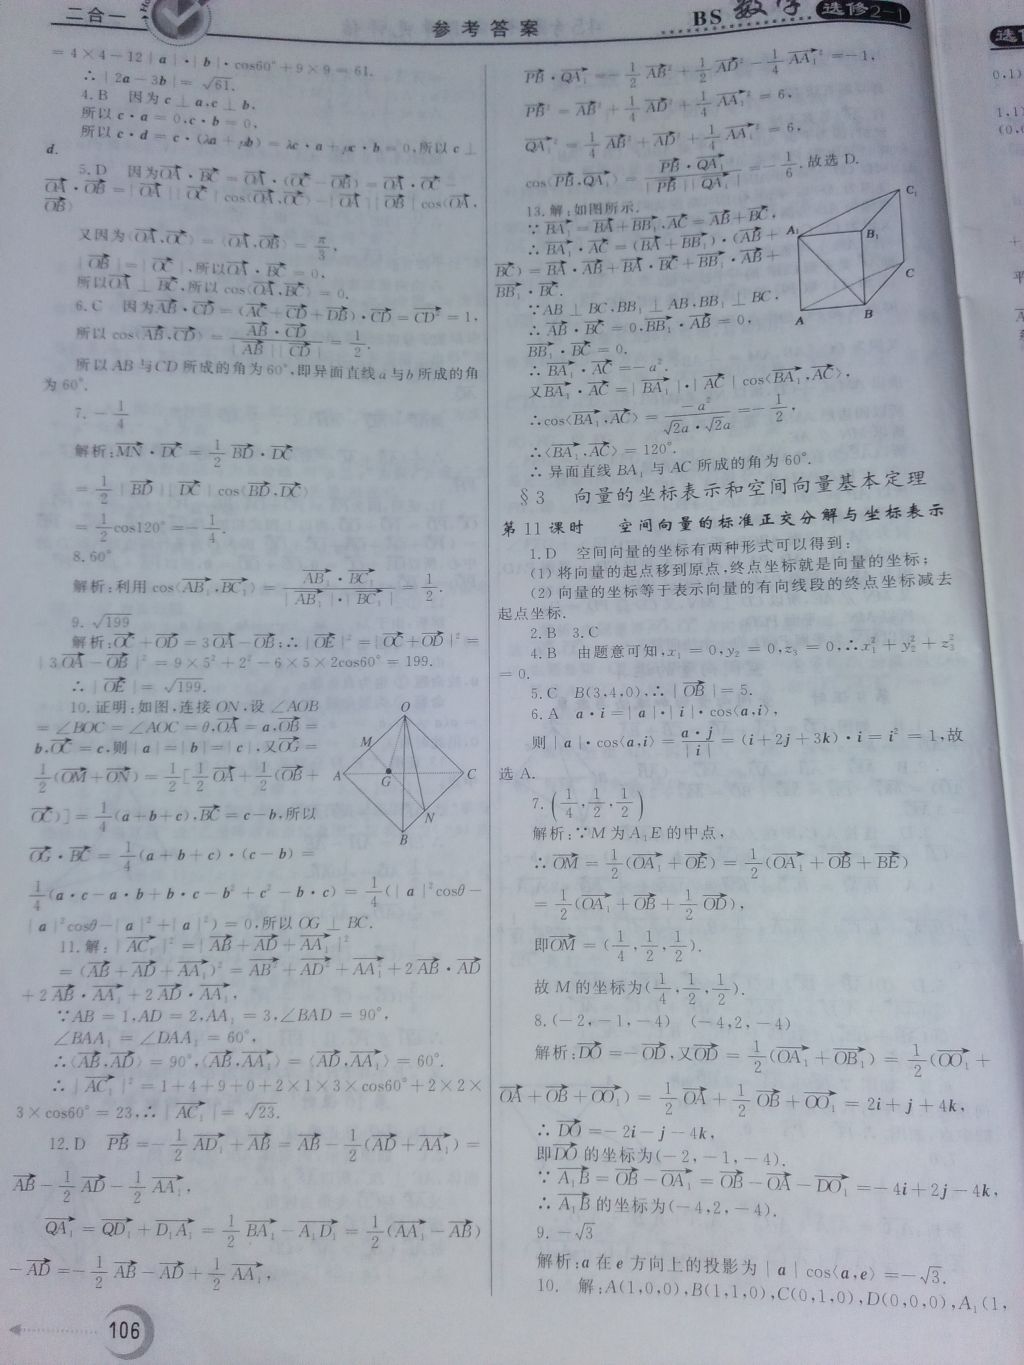 二合一
参考答案
BS 数学 选修2-1
=4×4-12|a|·|b|·cos60°+9×9=61.
∴|2a-3b|=√61.
4.B 因为c⊥a,c⊥b,
所以c·a=0,c·b=0,
所以c·d=c·(λa+μb)=λc·a+μc·b=0,所以c⊥
d.
5.D 因为OA·BC=OA·(OC-OB)=OA·OC-
OA·OB=|OA||OC|cos⟨OA,OC⟩-|OA||OB|cos⟨OA,
OB⟩
又因为⟨OA,OC⟩=⟨OA,OB⟩=π/3,
|OB|=|OC|,所以OA·BC=0,
所以OA⊥BC,所以cos⟨OA,BC⟩=0.
6.C 因为AB·CD=(AC+CD+DB)·CD=CD²=1,
所以cos⟨AB,CD⟩=AB·CD/|AB||CD|=1/2.
所以AB与CD所成的角为60°,即异面直线a与b所成的角
为60°.
7.-1/4
解析:MN·DC=1/2 BD·DC
=1/2|BD||DC|cos⟨BD,DC⟩
=1/2cos120°=-1/4.
8.60°
解析:利用cos⟨AB₁,BC₁⟩=AB₁·BC₁/|AB₁|·|BC₁|=1/2.
9.√199
解析:OC+OD=3OA-OB;∴|OE|²=|OC+OD|²=
|3OA-OB|²=9×5²+2²-6×5×2cos60°=199.
∴|OE|=√199.
10.证明:如图,连接ON,设∠AOB
=∠BOC=∠AOC=θ,OA=a,OB=
b,OC=c,则|a|=|b|=|c|,又OG=
1/2(OM+ON)=1/2[1/2 OA+1/2(OB+
OC)]=1/4(a+b+c),BC=c-b,所以
OG·BC=1/4(a+b+c)·(c-b)=
1/4(a·c-a·b+b·c-b²+c²-b·c)=1/4(|a|²cosθ-
|a|²cosθ-|a|²+|a|²)=0,所以OG⊥BC.
O
M
A
G
C
N
B
11.解:|AC₁|²=|AB+AD+AA₁|²
=(AB+AD+AA₁)²=AB²+AD²+AA₁²+2AB·AD
+2AB·AA₁+2AD·AA₁,
∵AB=1,AD=2,AA₁=3,∠BAD=90°,
∠BAA₁=∠DAA₁=60°,
∴⟨AB,AD⟩=90°,⟨AB,AA₁⟩=⟨AD,AA₁⟩=60°.
∴|AC₁|²=1+4+9+0+2×1×3×cos60°+2×2×
3×cos60°=23,∴|AC₁|=√23.
12.D PB=-1/2 AD₁+AB=AB-1/2(AD+AA₁)=
AB-1/2 AD-1/2 AA₁,
QA₁=QD₁+D₁A₁=1/2 BA₁-A₁D₁=1/2(AA₁-AB)
-AD=-1/2 AB-AD+1/2 AA₁,
106
PB·QA₁=-1/2 AB²+1/2 AD²-1/4 AA₁²=-1,
PB²=AB²+1/4 AD²+1/4 AA₁²=6,
QA₁²=1/4 AB²+AD²+1/4 AA₁²=6,
cos⟨PB,QA₁⟩=PB·QA₁/|PB||QA₁|=-1/6.故选D.
13.解:如图所示.
∵BA₁=BA+BB₁,AC=AB+BC,
∴BA₁·AC=(BA+BB₁)·(AB+
BC)=BA·AB+BA·BC+BB₁·AB+
BB₁·BC.
∵AB⊥BC,BB₁⊥AB,BB₁⊥BC,
∴AB·BC=0,BB₁·AB=0,
BB₁·BC=0,
∴BA₁·AC=-a².
又BA₁·AC=|BA₁|·|AC|cos⟨BA₁,AC⟩,
∴cos⟨BA₁,AC⟩=-a²/√2a·√2a=-1/2,
∴⟨BA₁,AC⟩=120°.
∴异面直线BA₁与AC所成的角为60°.
C₁
A₁
B₁
C
A
B
§3 向量的坐标表示和空间向量基本定理
第11课时 空间向量的标准正交分解与坐标表示
1.D 空间向量的坐标有两种形式可以得到:
(1)将向量的起点移到原点,终点坐标就是向量的坐标;
(2)向量的坐标等于表示向量的有向线段的终点坐标减去
起点坐标.
2.B 3.C
4.B 由题意可知,x₁=0,y₂=0,z₃=0,∴x₁²+y₂²+z₃²
=0.
5.C B(3,4,0),∴|OB|=5.
6.A a·i=|a|·|i|·cos⟨a,i⟩,
则|a|·cos⟨a,i⟩=a·j/|i|=(i+2j+3k)·i=i²=1,故
选A.
7.(1/4,1/2,1/2)
解析:∵M为A₁E的中点,
∴OM=1/2(OA₁+OE)=1/2(OA₁+OB+BE)
=1/2(OA₁+OB+1/2 OD),
即OM=(1/4,1/2,1/2).
故M的坐标为(1/4,1/2,1/2).
8.(-2,-1,-4) (-4,2,-4)
解析:DO=-OD,又OD=1/2(OA₁+OB₁)=1/2(OO₁+
OA+OB+OO₁)=1/2 OA+1/2 OB+OO₁=2i+j+4k,
∴DO=-2i-j-4k,
即DO的坐标为(-2,-1,-4).
∵A₁B=OB-OA₁=OB-OA-DO₁=-4i+2j-4k,
∴A₁B的坐标为(-4,2,-4).
9.-√3
解析:a在e方向上的投影为|a|cos⟨a,e⟩=-√3.
10. 解:A(1,0,0),B(1,1,0),C(0,1,0),D(0,0,0),A₁(1,